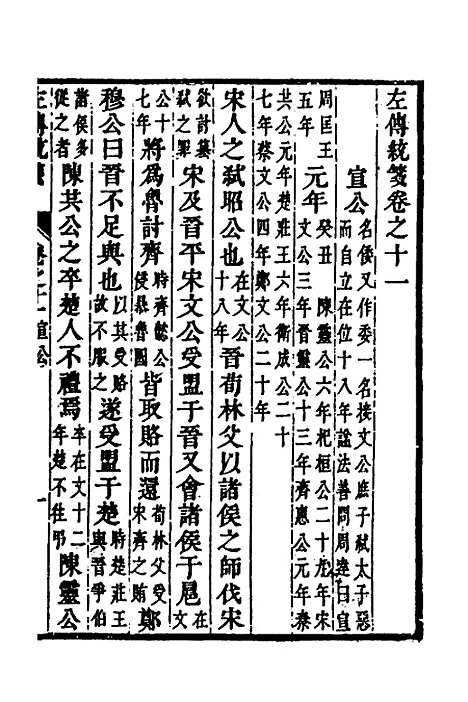 左傳統箋卷之十一
宣公 名倭又作委一名接文公庶子弑太子惡而自立在位十八年諡法善問周達曰宣
周匡王五年 元年 癸丑 陳靈公六年杞桓公二十九年宋文公三年晉靈公十三年齊惠公元年秦
共公元年楚莊王六年衛成公二十七年蔡文公四年鄭文公二十年
宋人之弑昭公也 在文公十八年 晉荀林父以諸侯之師伐宋
欲討弑之罪 宋及晉平宋文公受盟于晉又會諸侯于扈 在文
公十七年 將爲魯討齊 時齊懿公侵暴魯國 皆取賂而還 荀林父受宋齊之賂 鄭
穆公曰晉不足與也 以其受賂故不服之 遂受盟于楚 時楚莊王與晉爭伯
諸侯多從之者 陳共公之卒楚人不禮焉 卒在文十二年楚不往弔 陳靈公
左傳統箋 卷之十一宣公 一